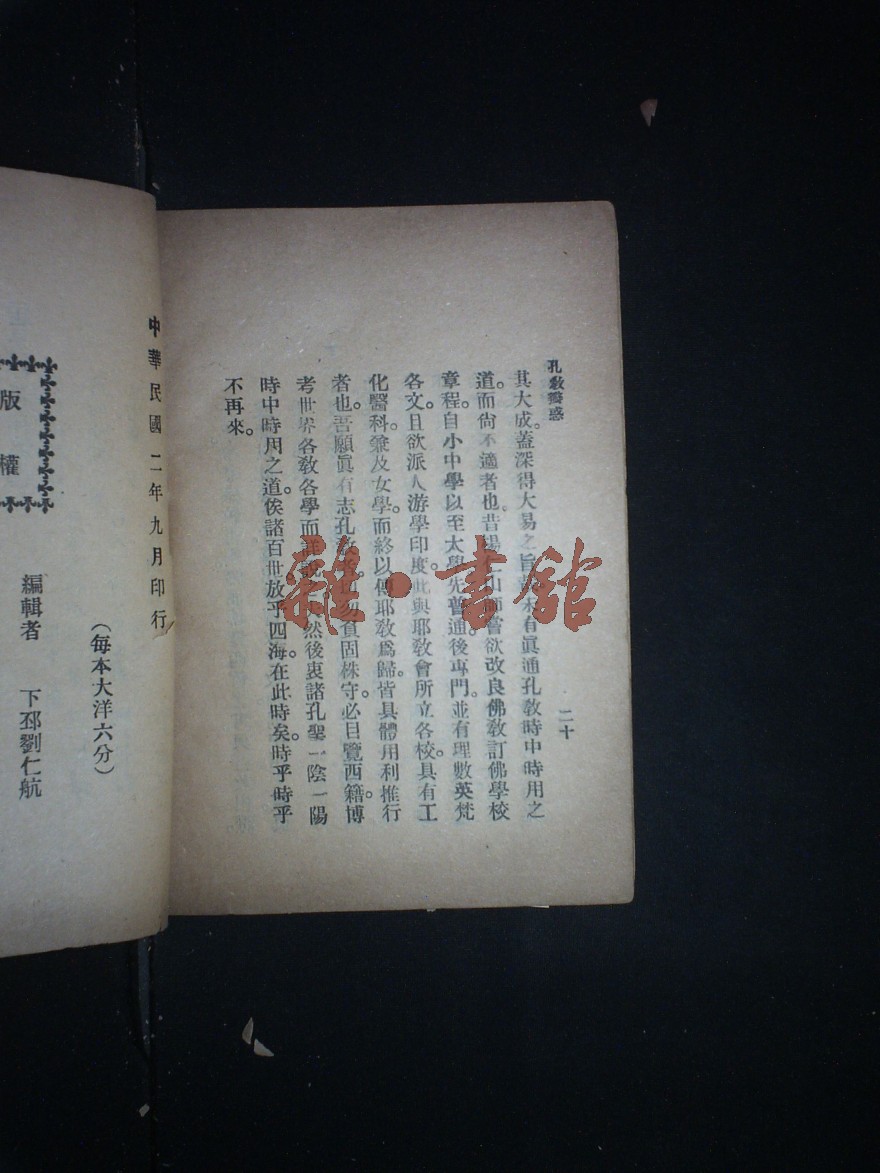 孔敎辯惑
二十
其大成。蓋深得大易之旨。未有眞通孔敎時中時用之
道。而尙不適者也。昔楊仁山師嘗欲改良佛敎訂佛學校
章程。自小中學以至太學先普通後專門。並有理數英梵
各文且欲派人游學印度。此與耶敎會所立各校。具有工
化醫科。兼及女學。而終以傳耶敎爲歸。皆具體用利推行
者也。吾願眞有志孔敎者勿負固株守。必目覽西籍。博
考世界各敎各學而然後衷諸孔聖一陰一陽
時中時用之道。俟諸百世放乎四海。在此時矣。時乎時乎
不再來。
中華民國二年九月印行
(每本大洋六分)
編輯者 下邳劉仁航
版權
雜·書館